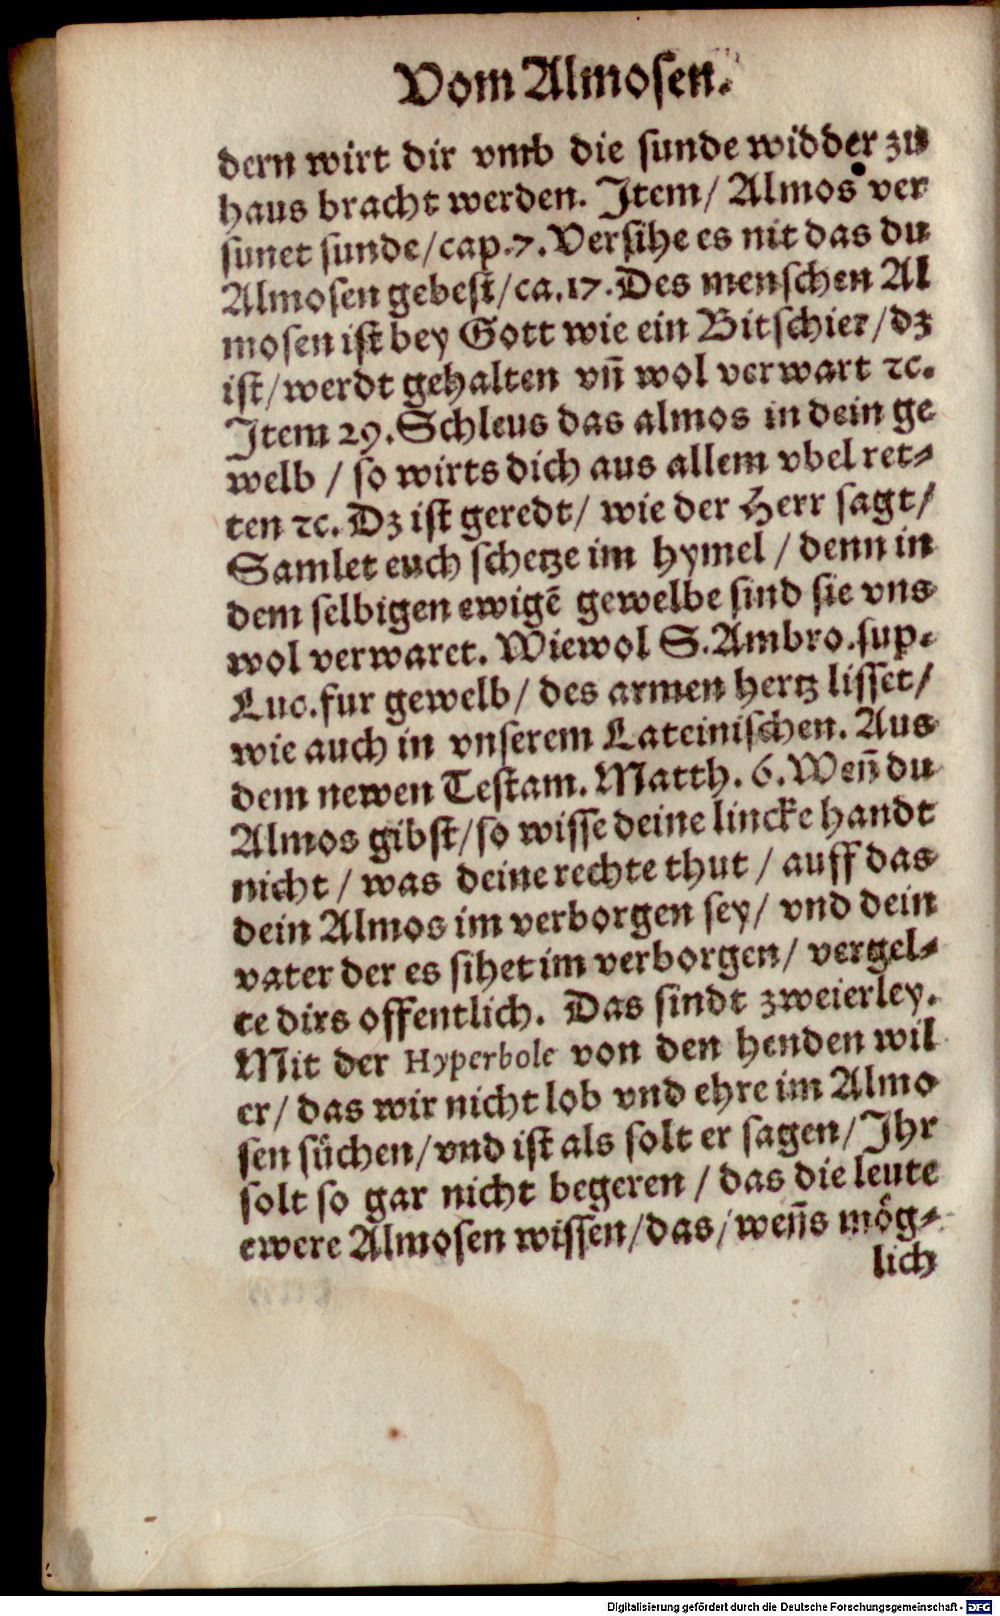 Vom Almosen.
dern wirt dir vmb die sunde widder zu
haus bracht werden. Item/ Almos ver
sunet sunde/cap.7. Versihe es nit das du
Almosen gebest/ca.17. Des menschen Al
mosen ist bey Gott wie ein Bitschier/dz
ist/werdt gehalten vñ wol verwart ꝛc.
Item 29. Schleus das almos in dein ge
welb / so wirts dich aus allem vbel ret⸗
ten ꝛc. Dz ist geredt/ wie der Herr sagt/
Samlet euch schetze im hymel / denn in
dem selbigen ewigē gewelbe sind sie vns
wol verwaret. Wiewol S. Ambro. sup.
Luc. fur gewelb/ des armen hertz lisset/
wie auch in vnserem Lateinischen. Aus
dem newen Testam. Matth. 6. Weñ du
Almos gibst/so wisse deine lincke handt
nicht / was deine rechte thut / auff das
dein Almos im verborgen sey/ vnd dein
vater der es sihet im verborgen/ vergel⸗
te dirs offentlich. Das sindt zweierley.
Mit der Hyperbole von den henden wil
er/ das wir nicht lob vnd ehre im Almo
sen sůchen/vnd ist als solt er sagen/ Ihr
solt so gar nicht begeren / das die leute
ewere Almosen wissen/das/weñs mög⸗
lich
Digitalisierung gefördert durch die Deutsche Forschungsgemeinschaft - DFG